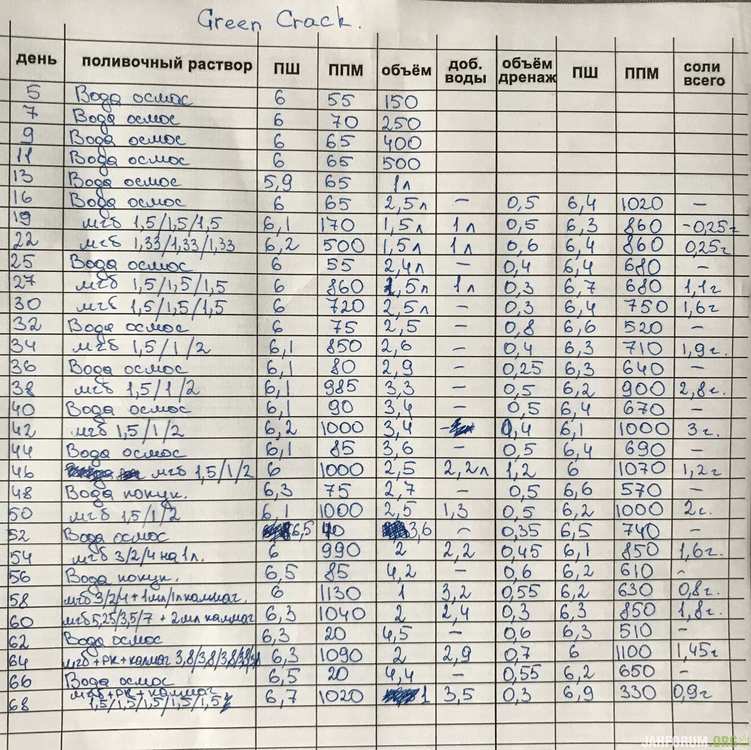 Green Crack.
день поливочный раствор ПШ ППМ объём доб. воды объём дренаж ПШ ППМ соли всего
5 Вода осмос 6 55 150
7 Вода осмос 6 70 250
9 Вода осмос 6 65 400
11 Вода осмос 6 65 500
13 Вода осмос 5,9 65 1л
16 Вода осмос 6 65 2,5л – 0,5 6,4 1020 –
19 мгб 1,5/1,5/1,5 6,1 170 1,5л 1л 0,5 6,3 860 -0,25г
22 мгб 1,33/1,33/1,33 6,2 500 1,5л 1л 0,6 6,4 860 0,25г
25 Вода осмос 6 55 2,4л – 0,4 6,4 680 –
27 мгб 1,5/1,5/1,5 6 860 2,5л 1л 0,3 6,7 680 1,1г
30 мгб 1,5/1,5/1,5 6 720 2,5л – 0,3 6,4 750 1,6г
32 Вода осмос 6 75 2,5 – 0,8 6,6 520 –
34 мгб 1,5/1/2 6,1 850 2,6 – 0,4 6,3 710 1,9г.
36 Вода осмос 6,1 80 2,9 – 0,25 6,3 640 –
38 мгб 1,5/1/2 6,1 985 3,3 – 0,5 6,2 900 2,8г.
40 Вода осмос 6,1 90 3,4 – 0,5 6,4 670 –
42 мгб 1,5/1/2 6,2 1000 3,4 – 0,4 6,1 1000 3г.
44 Вода осмос 6,1 85 3,6 – 0,5 6,4 690 –
46 мгб 1,5/1/2 6 1000 2,5 2,2л 1,2 6 1070 1,2г
48 Вода покуп. 6,3 75 2,7 – 0,5 6,6 570 –
50 мгб 1,5/1/2 6,1 1000 2,5 1,3 0,5 6,2 1000 2г.
52 Вода осмос 6,5 3,6 – 0,35 6,5 740 –
54 мгб 3/2/4 на 1л. 6 990 2 2,2 0,45 6,1 850 1,6г.
56 Вода покуп. 6,5 85 4,2 – 0,6 6,2 610 –
58 мгб 3/2/4 + 1мл/1л калмаг. 6 1130 1 3,2 0,55 6,2 630 0,8г.
60 мгб 5,25/3,5/7 + 2мл калмаг 6,3 1040 2 2,4 0,3 6,3 850 1,8г.
62 Вода осмос 6,3 20 4,5 – 0,6 6,3 510 –
64 мгб+РК+калмаг 3,8/3,8/3,8 6,3 1090 2 2,9 0,7 6 1100 1,45г
66 Вода осмос 6,5 20 4,4 – 0,55 6,2 650 –
68 мгб+РК+калмаг 1,5/1,5/1,5/1,5/1,5 6,7 1020 1 3,5 0,3 6,9 330 0,9г
JAHFORUM.ORG